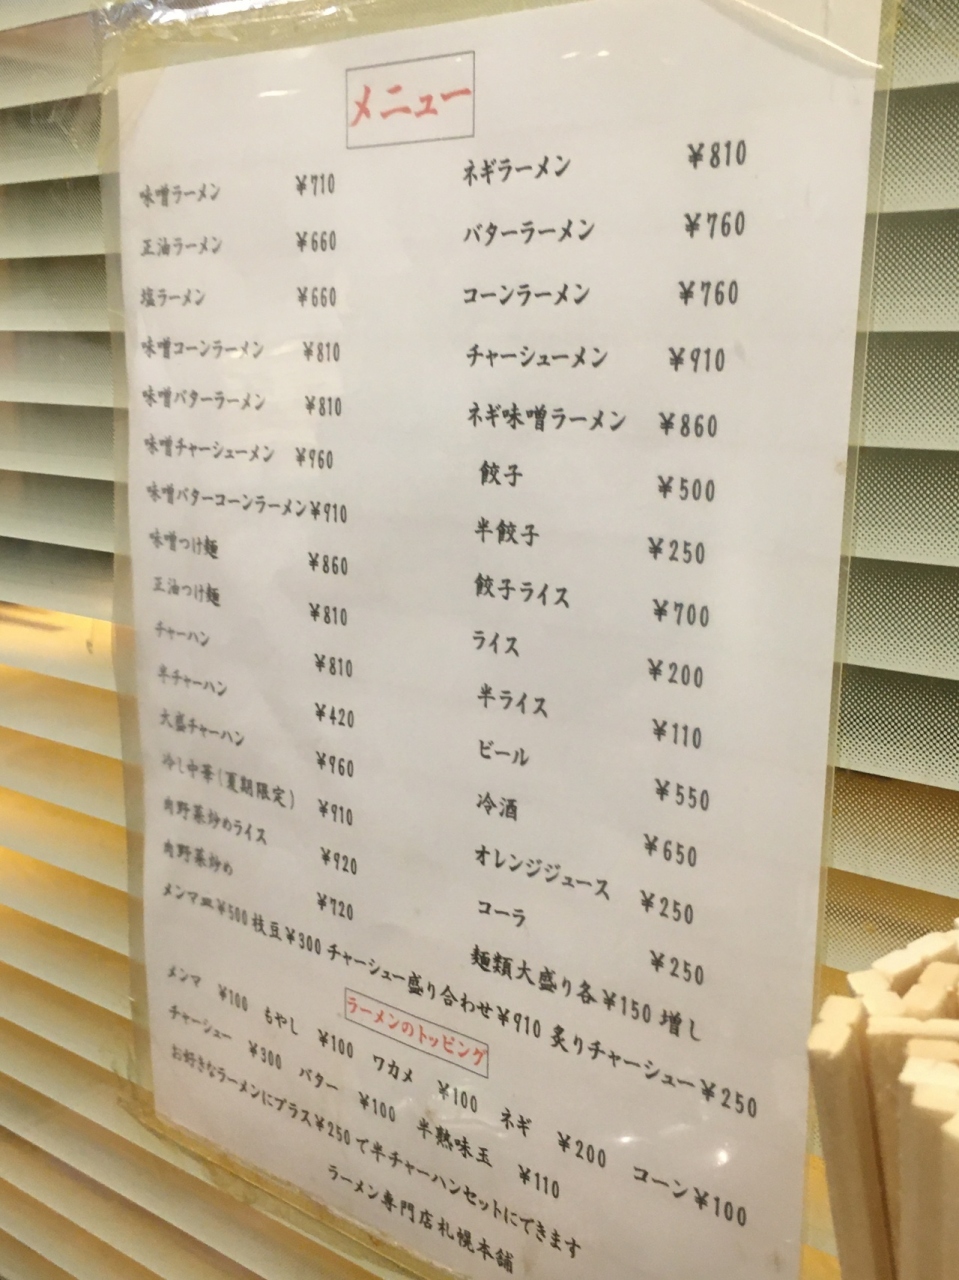 メニュー
味噌ラーメン ¥710
正油ラーメン ¥660
塩ラーメン ¥660
味噌コーンラーメン ¥810
味噌バターラーメン ¥810
味噌チャーシューメン ¥960
味噌バターコーンラーメン ¥910
味噌つけ麺 ¥860
正油つけ麺 ¥810
チャーハン ¥810
半チャーハン ¥420
大盛チャーハン ¥960
冷し中華(夏期限定) ¥910
肉野菜炒めライス ¥920
肉野菜炒め ¥720
ネギラーメン ¥810
バターラーメン ¥760
コーンラーメン ¥760
チャーシューメン ¥910
ネギ味噌ラーメン ¥860
餃子 ¥500
半餃子 ¥250
餃子ライス ¥700
ライス ¥200
半ライス ¥110
ビール ¥550
冷酒 ¥650
オレンジジュース ¥250
コーラ ¥250
麺類大盛り各¥150増し
メンマ皿¥500 枝豆¥300 チャーシュー盛り合わせ¥910 炙りチャーシュー¥250
ラーメンのトッピング
メンマ ¥100 もやし ¥100 ワカメ ¥100 ネギ ¥200 コーン¥100
チャーシュー ¥300 バター ¥100 半熟味玉 ¥110
お好きなラーメンにプラス¥250で半チャーハンセットにできます
ラーメン専門店札幌本舗